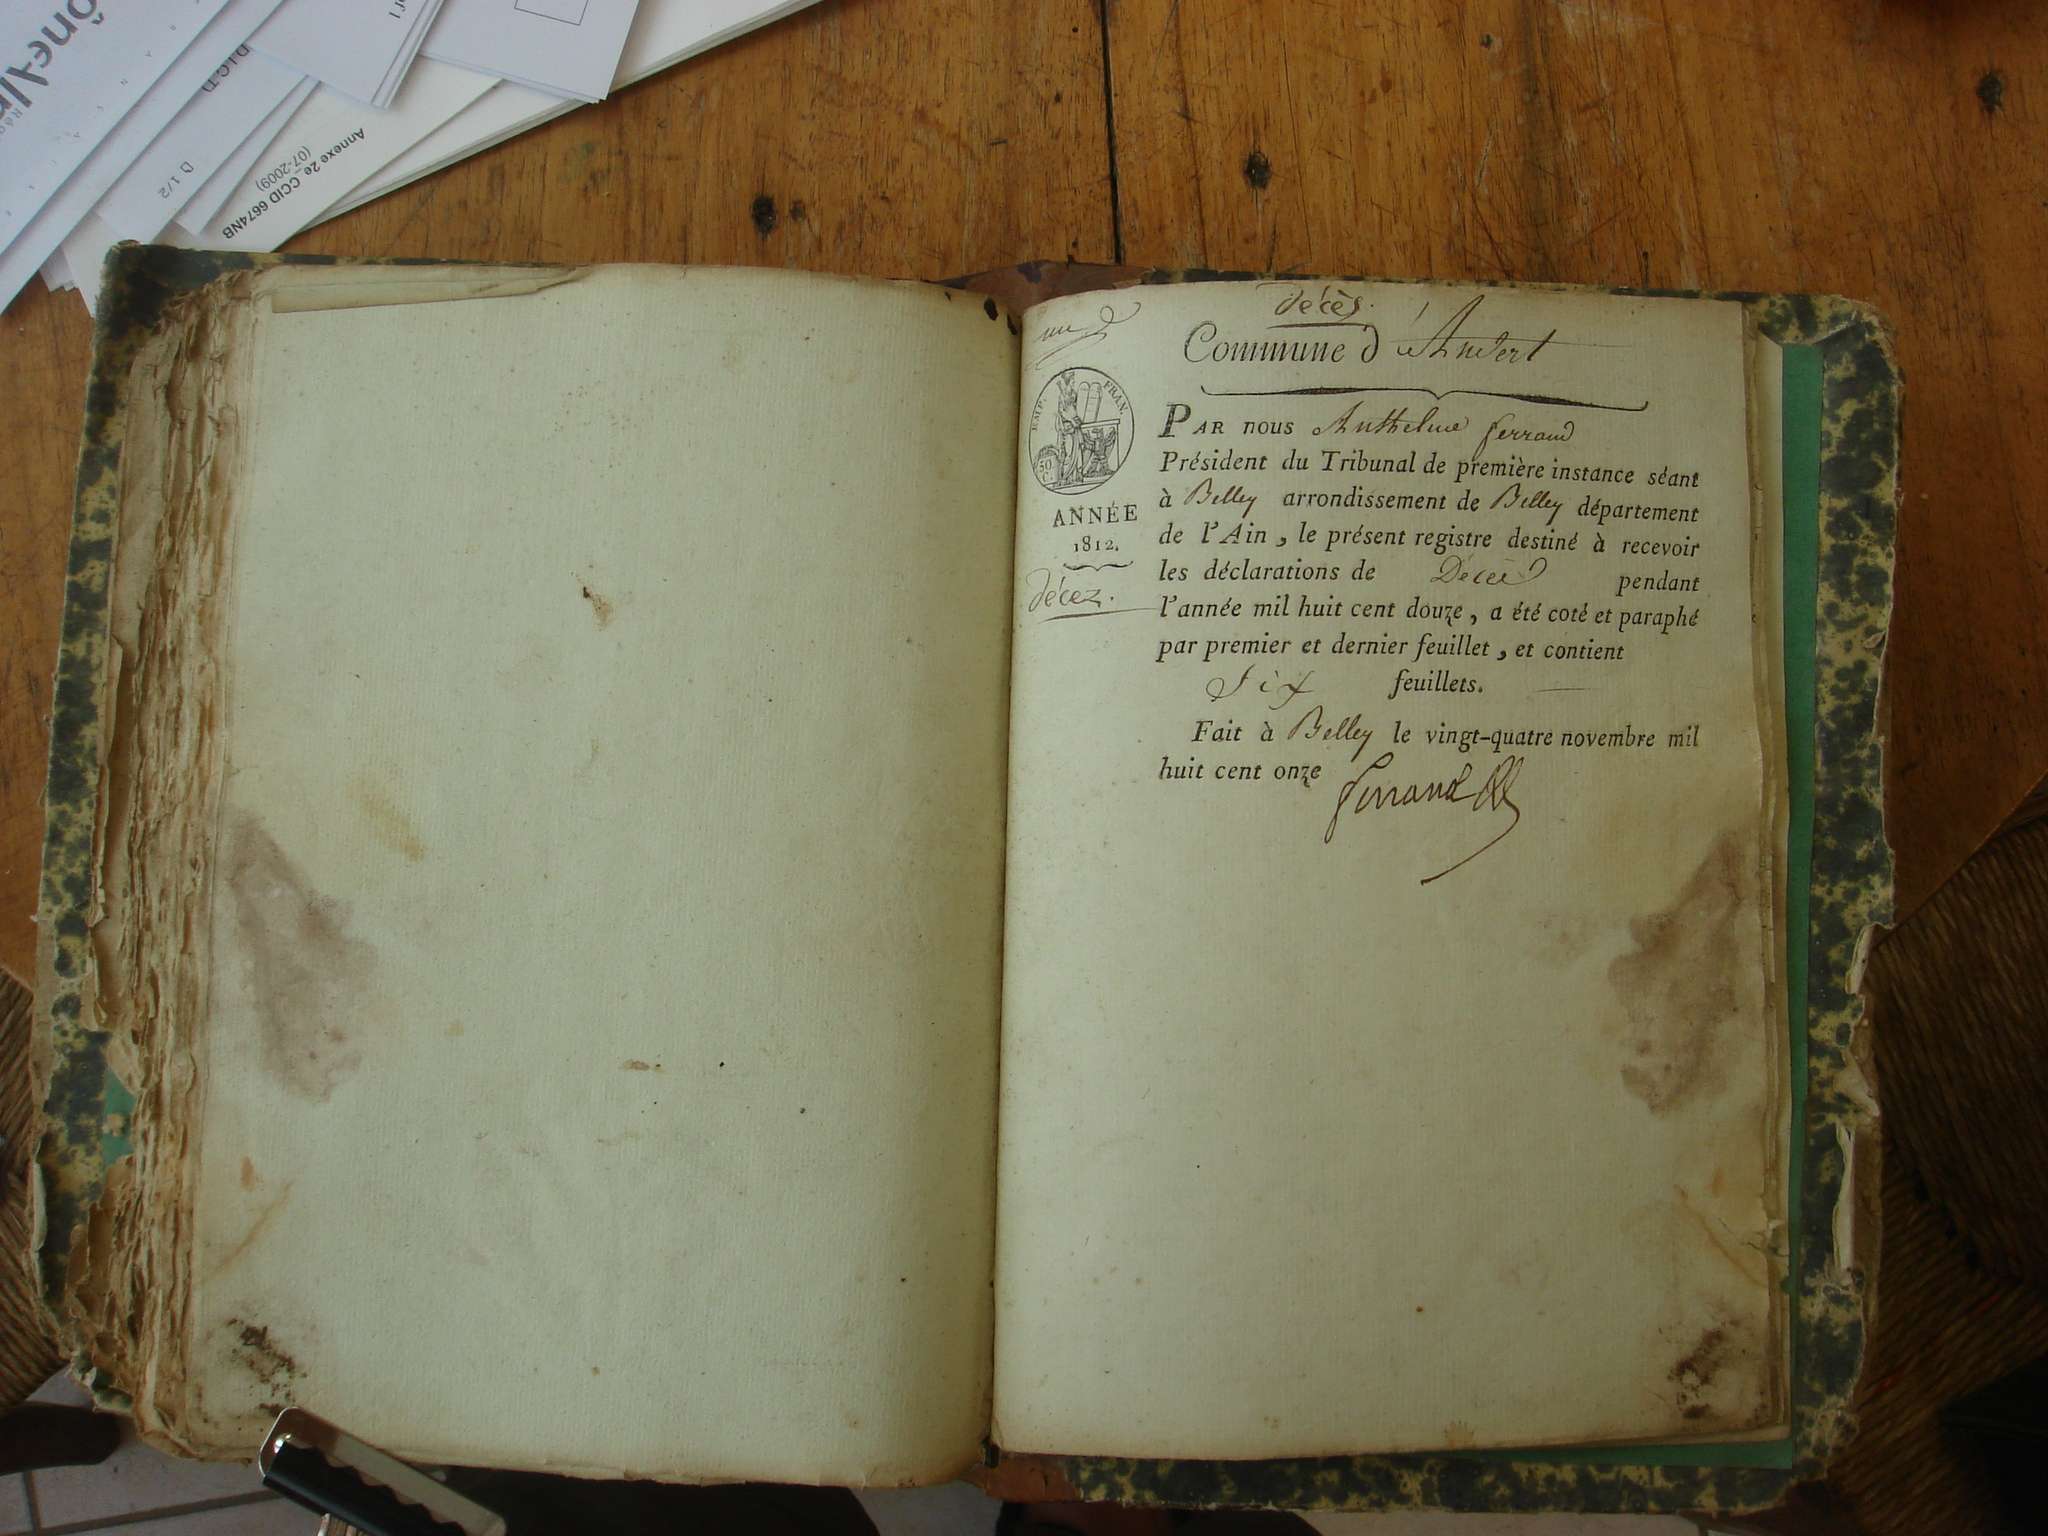 D.I.C.T.D
D 1/2
Annexe 2e_ CCID 6674NB
(07-2009)
décès.
Commune d'Andert
EMP. FRAN.
50
C.
ANNÉE
1812.
décez.
PAR nous Anthelme ferrand
Président du Tribunal de première instance séant
à Belley arrondissement de Belley département
de l'Ain, le présent registre destiné à recevoir
les déclarations de Décès pendant
l'année mil huit cent douze, a été coté et paraphé
par premier et dernier feuillet, et contient
Six feuillets.
Fait à Belley le vingt-quatre novembre mil
huit cent onze
ferrand